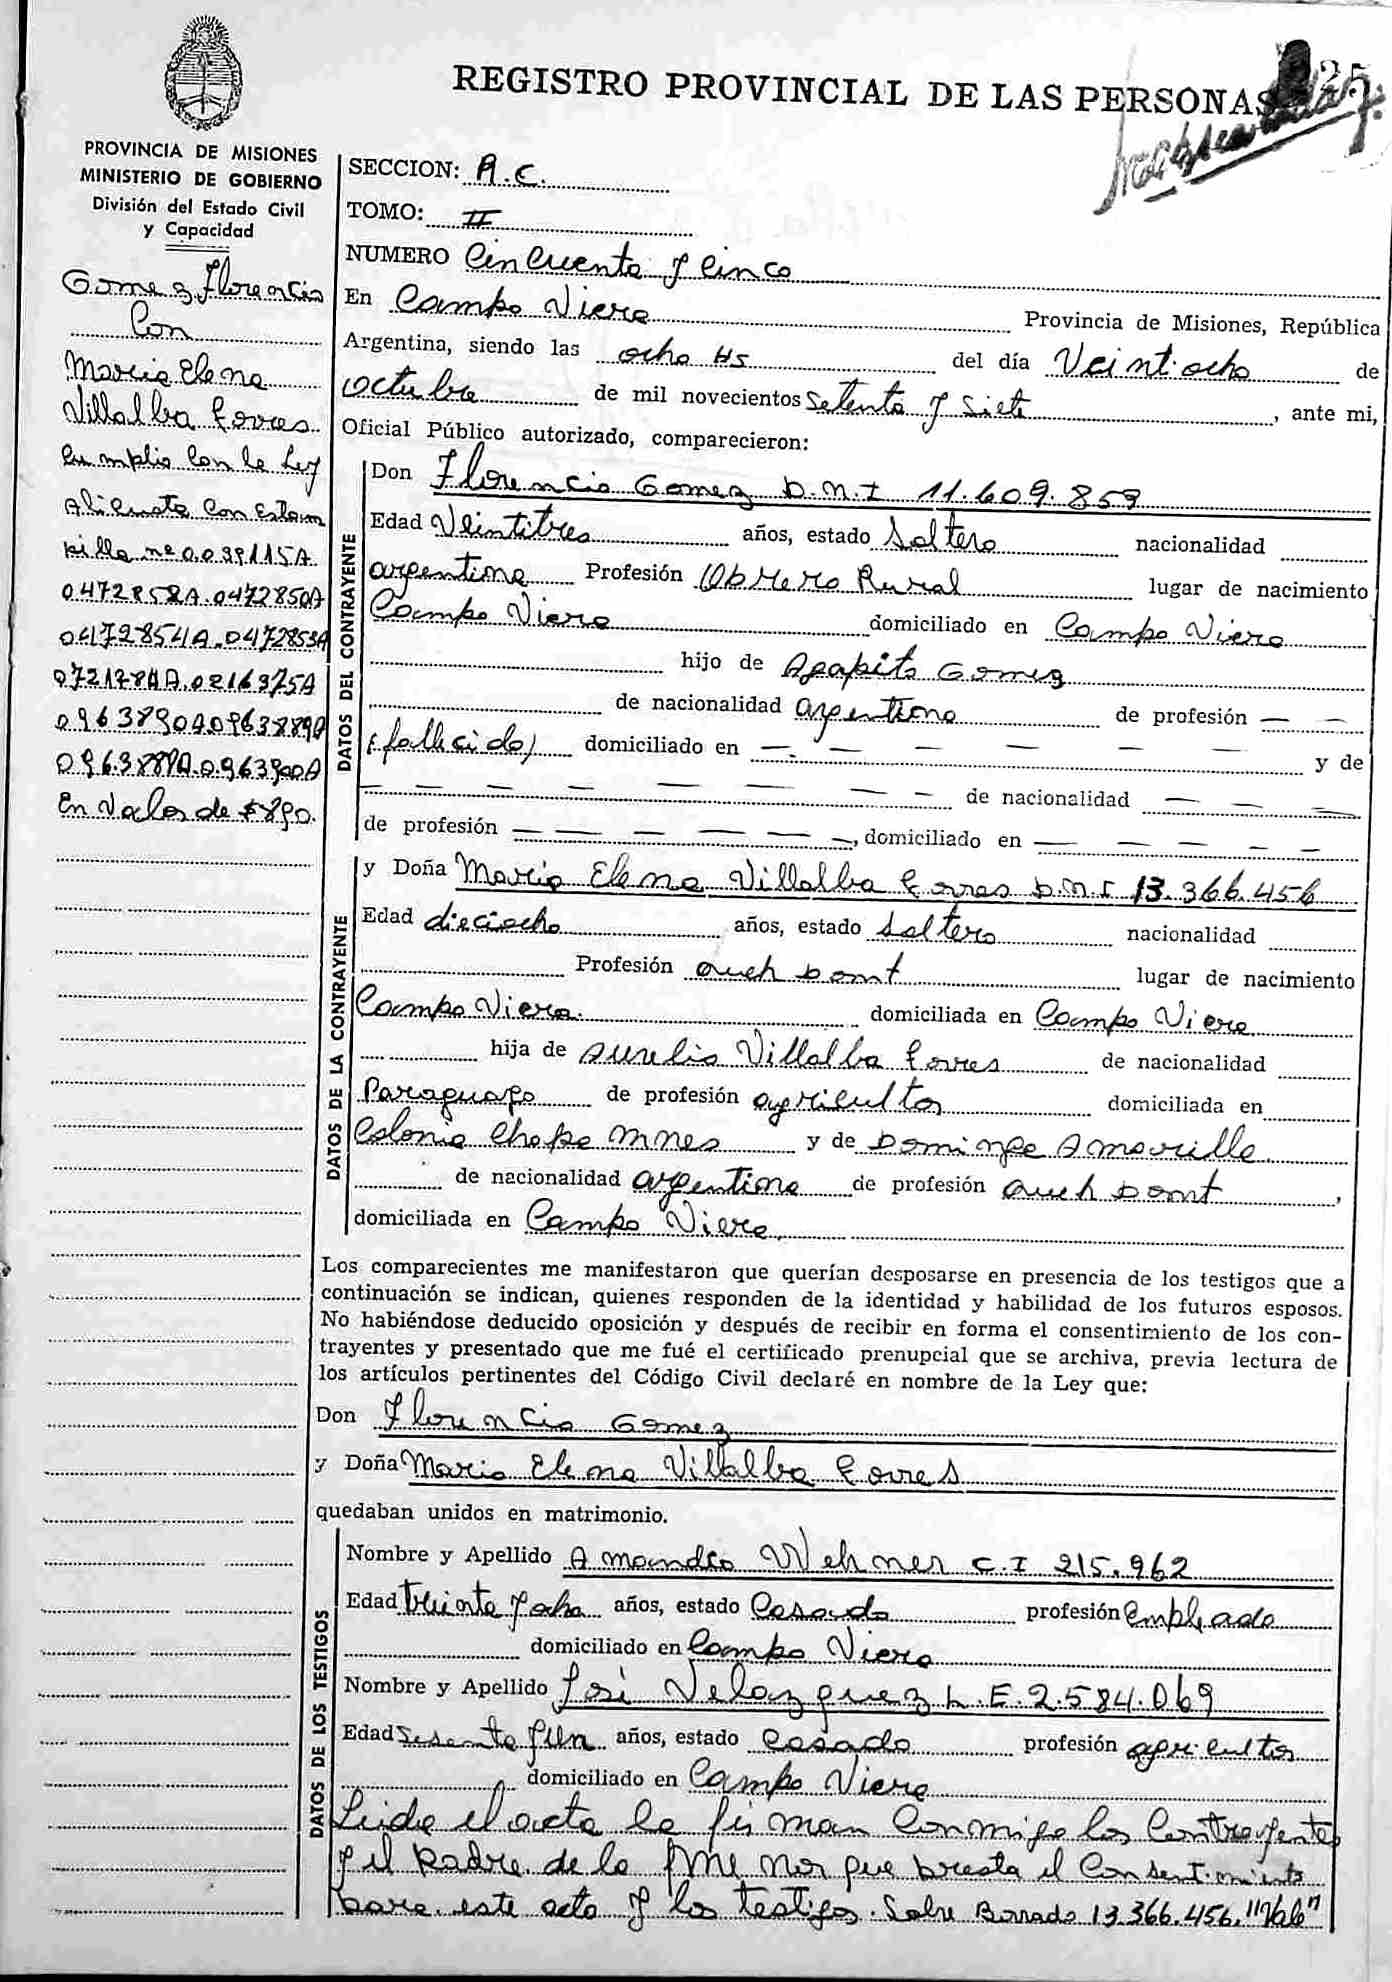 REGISTRO PROVINCIAL DE LAS PERSONAS
25
PROVINCIA DE MISIONES
MINISTERIO DE GOBIERNO
División del Estado Civil
y Capacidad
Gomez Florencio
Con
Maria Elena
Villalba Torres
Cumplio Con la Ley
Alicuota Con Estam
pilla nº 0039115A
0472852A.0472850A
0472854A.0472853A
0721784A.0216375A
0963890A0963889A
0963888A.0963900A
En Valor de $890.
SECCION: A.C.
TOMO: II
NUMERO Cincuenta y Cinco
En Campo Viera Provincia de Misiones, República
Argentina, siendo las ocho Hs del día Veintiocho de
octubre de mil novecientos Setenta y Siete, ante mi,
Oficial Público autorizado, comparecieron:
DATOS DEL CONTRAYENTE
Don Florencio Gomez D.N.I 11.609.859
Edad Veintitres años, estado Soltero nacionalidad
argentina Profesión Obrero Rural lugar de nacimiento
Campo Viera domiciliado en Campo Viera
hijo de Agapito Gomez
de nacionalidad argentina de profesión — —
(fallecido) domiciliado en — — — — — — y de
— — — — — — — — — — de nacionalidad — — —
de profesión — — — — — —, domiciliado en — — — — — —
DATOS DE LA CONTRAYENTE
y Doña Maria Elena Villalba Torres D.N.I 13.366.456
Edad dieciocho años, estado Soltera nacionalidad
Profesión queh Domt lugar de nacimiento
Campo Viera. domiciliada en Campo Viera
hija de Aurelio Villalba Torres de nacionalidad
Paraguayo de profesión agricultor domiciliada en
Colonia Chapa Mnes y de Dominga Amarilla
de nacionalidad argentina de profesión queh Domt,
domiciliada en Campo Viera
Los comparecientes me manifestaron que querían desposarse en presencia de los testigos que a
continuación se indican, quienes responden de la identidad y habilidad de los futuros esposos.
No habiéndose deducido oposición y después de recibir en forma el consentimiento de los con-
trayentes y presentado que me fué el certificado prenupcial que se archiva, previa lectura de
los artículos pertinentes del Código Civil declaré en nombre de la Ley que:
Don Florencio Gomez
y Doña Maria Elena Villalba Torres
quedaban unidos en matrimonio.
DATOS DE LOS TESTIGOS
Nombre y Apellido Amandio Wehner C.I 215.962
Edad treinta y ocho años, estado Casado profesión Empleado
domiciliado en Campo Viera
Nombre y Apellido José Velazquez L.E.2.584.069
Edad Sesenta y un años, estado Casado profesión agricultor
domiciliado en Campo Viera
Leida el acta la firman Conmigo los Contrayentes
y el padre de la menor que presta el Consentimiento
para este acto y los testigos. Sobre Borrado 13.366.456. "Vale"